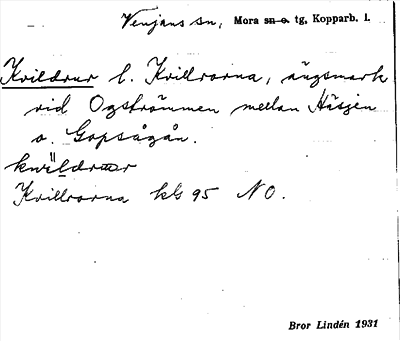 Venjans sn, Mora sn o. tg, Kopparb. l.
Kvildrur l. Kvillrorna, ängsmark
vid Ogströmmen mellan Häsjen
o. Gopsågån.
Kvillrorna kls 95 NO.
Bror Lindén 1931